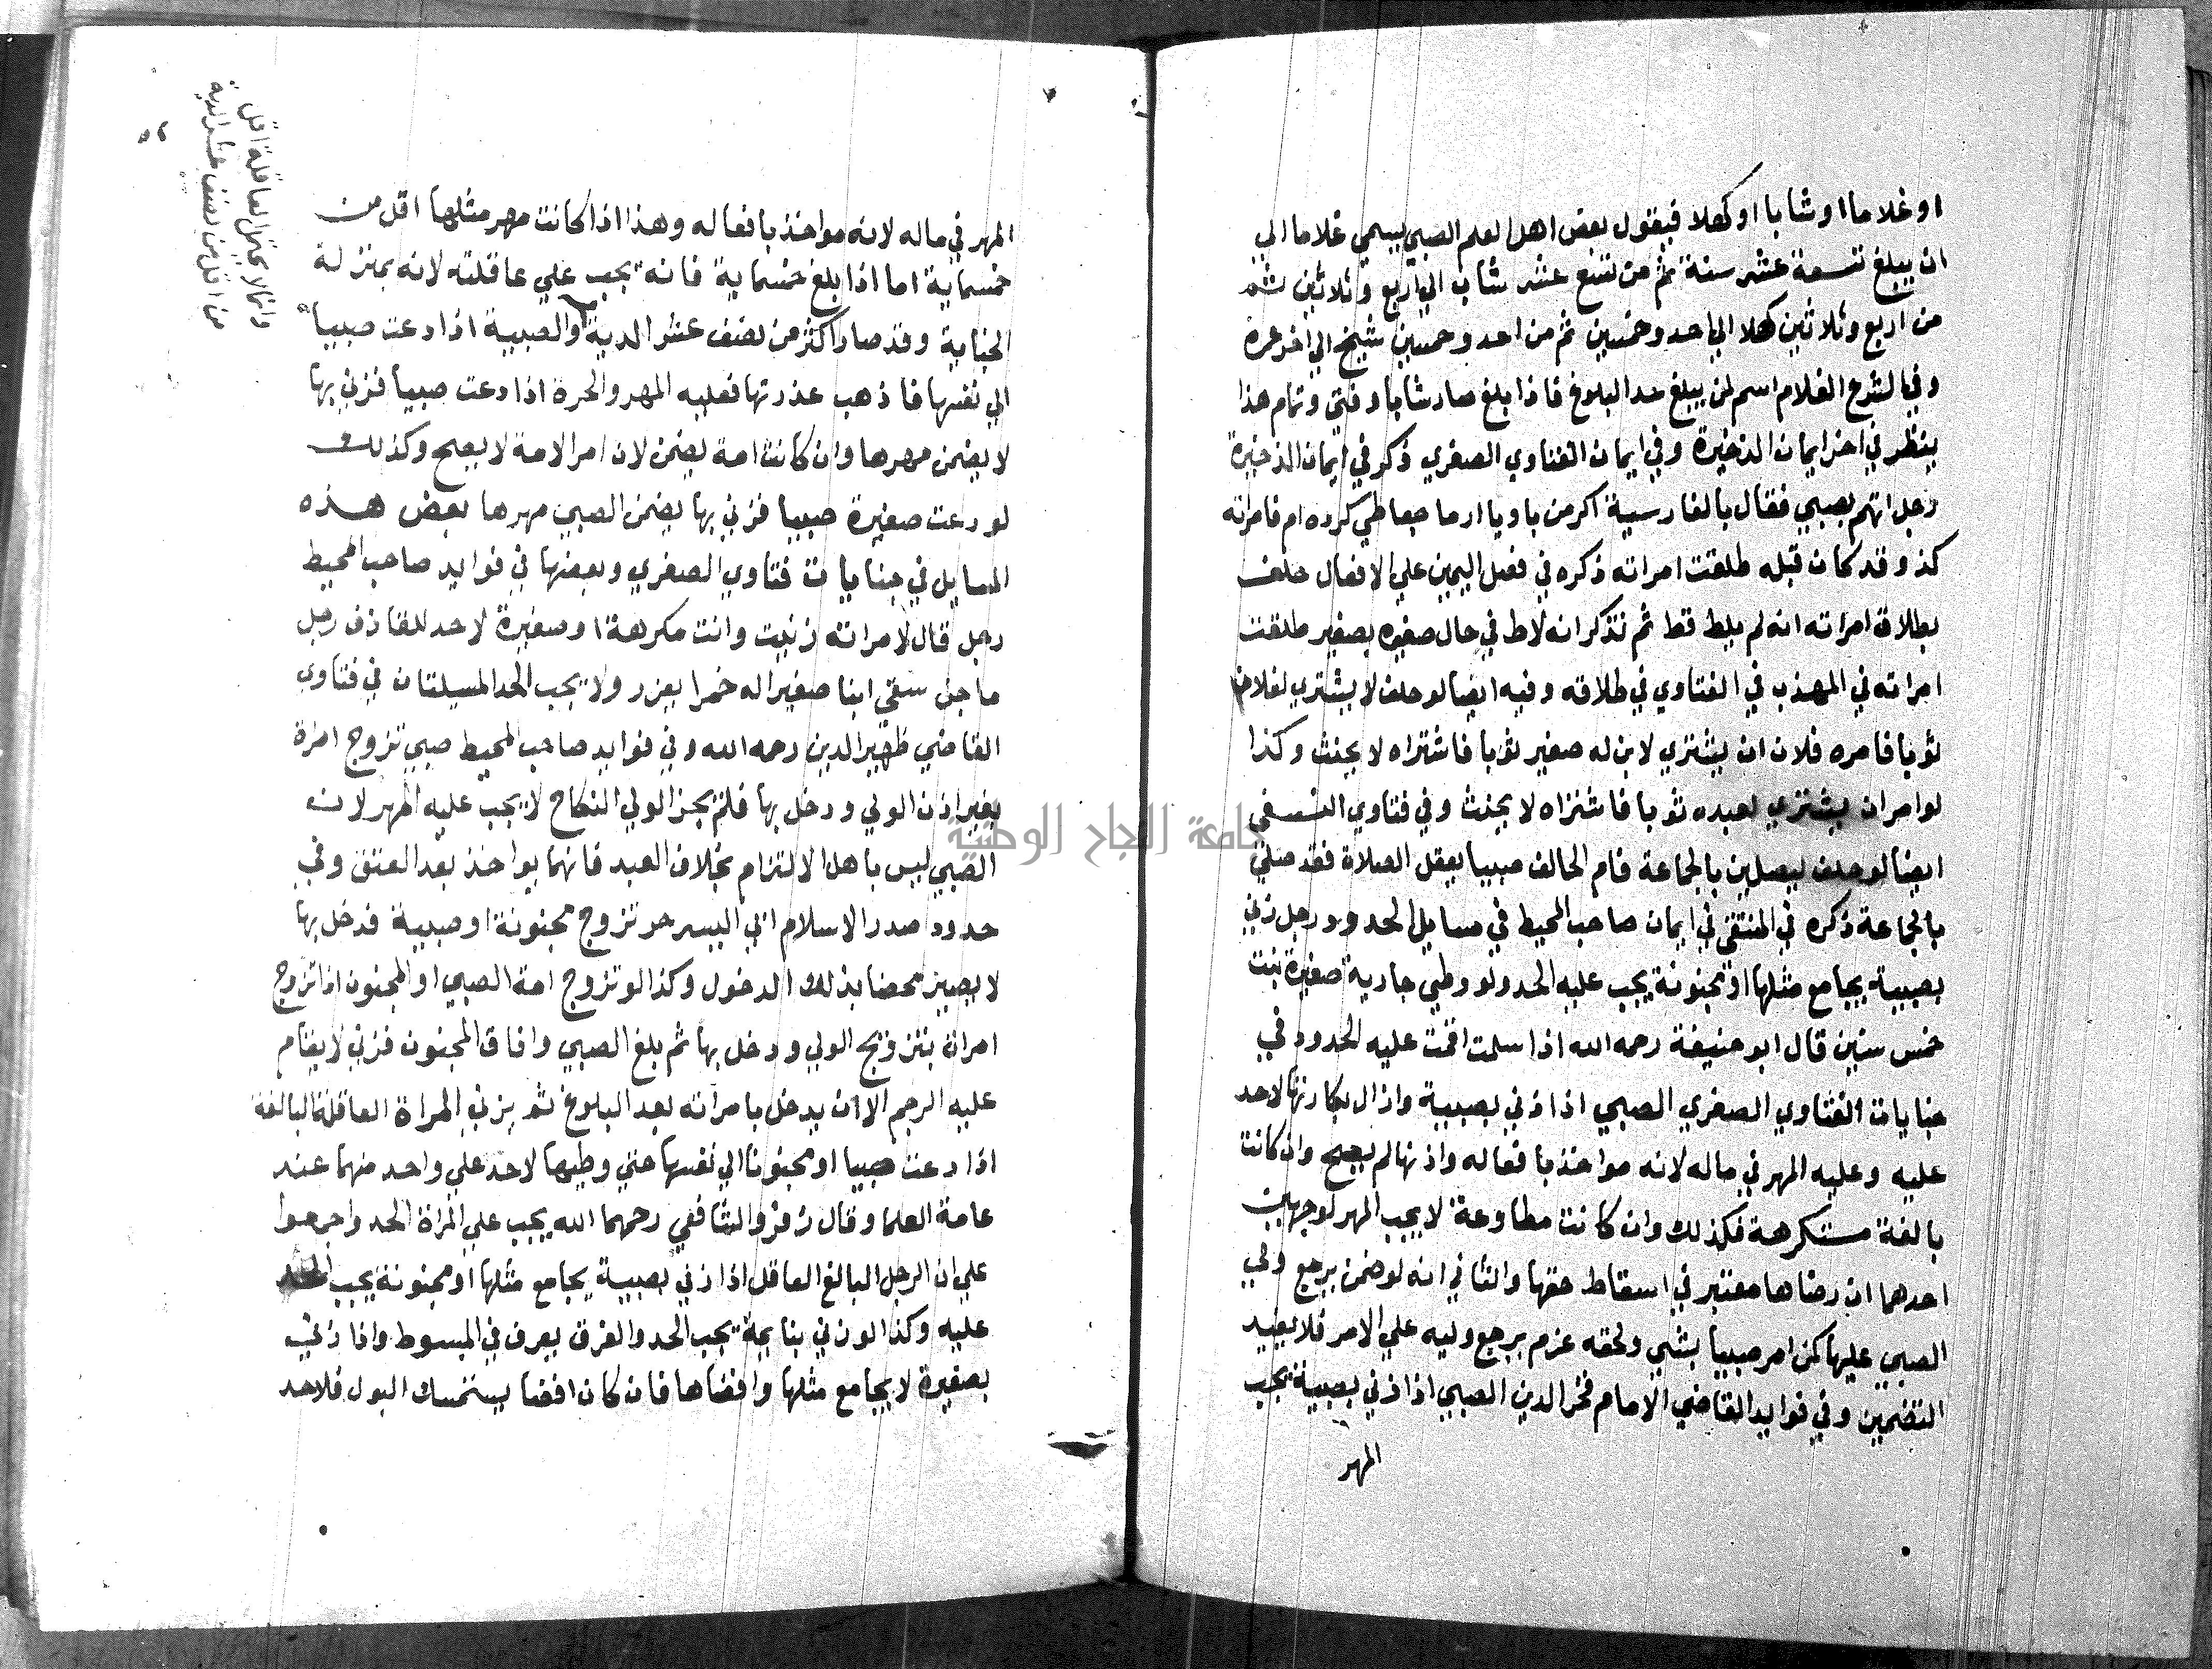 او غلاما او شابا او كهلا فيقول بعض اهل العلم الصبي يسمي غلاما الي
ان يبلغ تسعة عشر سنة ثم من تسع عشر شاب الي اربع وثلاثين ثم
من اربع وثلاثين كهلا الي احد وخمسين ثم من احد وخمسين شيخ الي اخر عمره
وفي الشرع الغلام اسم لمن يبلغ حد البلوغ فاذا بلغ صار شابا وفتي وتمام هذا
ينظر في اخر ايمان الذخيرة وفي ايمان الفتاوي الصغري ذكر في ايمان الذخيرة
رجل اتهم بصبي فقال بالفارسية اكر من باو كرده ام فامراته
كذ وقد كان قبله طلقت امراته ذكره في فصل اليمين علي الافعال حلف
بطلاق امراته انه لم يلط قط ثم تذكر انه لاط في حال صغره بصغير طلقت
امراته في المهذب في الفتاوي في طلاقه وفيه ايضا لو حلف لا يشتري لفلان
ثوبا فامره فلان ان يشتري لابن له صغير ثوبا فاشتراه لا يحنث وكذا
لو امر ان يشتري لعبده ثوبا فاشتراه لا يحنث وفي فتاوي النسفي
ايضا لو حلف ليصلين بالجماعة فام الحالف صبيا يعقل الصلاة فقد صلي
بالجماعة ذكره في المنتقي في ايمان صاحب المحيط في مسايل الحدود رجل زني
بصبية يجامع مثلها او مجنونة يجب عليه الحد ولو وطي جارية صغيرة بنت
خمس سنين قال ابو حنيفة رحمه الله اذا سلمت اقمت عليه الحدود في
جنايات الفتاوي الصغري الصبي اذا زني بصبية وازال بكارتها لا حد
عليه وعليه المهر في ماله لانه مواخذ بافعاله واذنها لم يصح وان كانت
بالغة مستكرهة فكذلك وان كانت مطاوعة لا يجب المهر لوجهين
احدهما ان رضاها معتبر في اسقاط حقها والثاني انه لو ضمن يرجع ولي
الصبي عليها كمن امر صبيا بشي ولحقه غرم يرجع وليه علي الامر فلا يفيد
التضمين وفي فوايد القاضي الامام فخر الدين الصبي اذا زني بصبية يجب
المهر
٥٢
وانما لا تحتمل العاقلة اقل
من اقل من نصف عشر الدية
المهر في ماله لانه مواخذ بافعاله وهذا اذا كانت مهر مثلها اقل من
خمسماية اما اذا بلغ خمسماية فانه يجب علي عاقلته لانه بمنزلة
الجناية وقد صار اكثر من نصف عشر الدية والصبية اذا دعت صبيا
الي نفسها فاذهب عذرتها فعليه المهر والحرة اذا دعت صبيا فزني بها
لا يضمن مهرها وان كانت امة يضمن لان امر الامة لا يصح وكذلك
لو دعت صغيرة صبيا فزني بها يضمن الصبي مهرها بعض هذه
المسايل في جنايات فتاوي الصغري وبعضها في فوايد صاحب المحيط
رجل قال لامراته زنيت وانت مكرهة او صغيرة لا حد للقاذف رجل
ماجن سقي ابنا صغيرا له خمرا يعزر ولا يجب الحد المسيلتان في فتاوي
القاضي ظهير الدين رحمه الله وفي فوايد صاحب المحيط صبي تزوج امراة
بغير اذن الولي ودخل بها فلم يجز الولي النكاح لا يجب عليه المهر لان
الصبي ليس باهل الالتزام بخلاف العبد فانهما يواخذ بعد العتق وفي
حدود صدر الاسلام ابي اليسر حر تزوج مجنونة او صبية فدخل بها
لا يصير محصنا بذلك الدخول وكذا لو تزوج امة الصبي او المجنون اذا تزوج
امراة بتزويج الولي ودخل بها ثم بلغ الصبي وافاق المجنون فزني لا يقام
عليه الرجم الا ان يدخل بامراته بعد البلوغ ثم يزني المراة العاقلة البالغة
اذا دعت صبيا او مجنونا الي نفسها حتي وطيها لا حد علي واحد منهما عند
عامة العلما وقال زفر والشافعي رحمهما الله يجب علي المراة الحد واجمعوا
علي ان الرجل البالغ العاقل اذا زني بصبية يجامع مثلها او مجنونة يجب الحد
عليه وكذا لو زني بنايمة يجب الحد والفرق يعرف في المبسوط واذا زني
بصغيرة لا يجامع مثلها وافضاها فان كان افضا يستمسك البول فلا حد
جامعة النجاح الوطنية